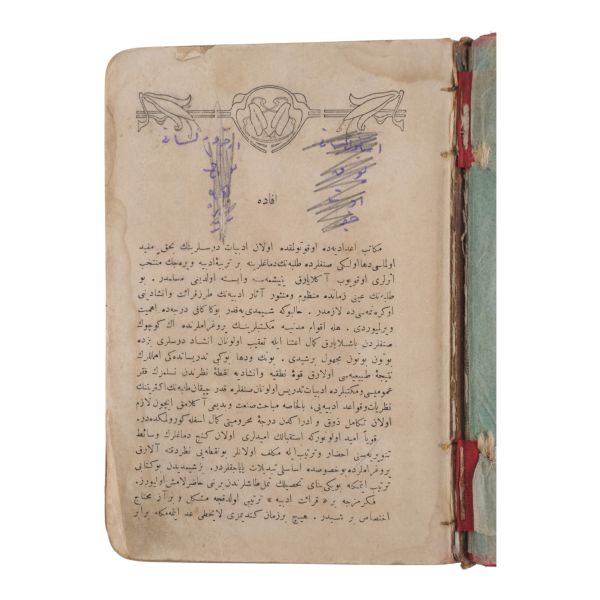 افاده
مکاتب اعدادیه‌ده اوقوتولمقده اولان ادبیات درسلرینك بحق مفید
اولماسی دها اولکی صنفلرده طلبه‌نك دماغلرینه بر تربیهٔ ادبیه ویره‌جك منتخب
اثرلری اوقویوب آکلایارق یتیشمه‌سنه وابسته اولدینی مسلمدر .
طلبه‌نك عینی زمانده منظوم ومنثور آثار ادبیه‌نك طرز قرائت وانشادینی
اوکرنمه‌سی ده لازمدر . حالبوکه شیمدی‌یه‌قدر بوکا کافی درجه‌ده اهمیت
ویرلمیوردی . هله اقوام مدنیه مکتبلرینك پروغراملرنده اك کوچوك
صنفلردن باشلایارق کمال اعتنا ایله تعقیب اولونان انشاد درسلری بزده
بوتون بوتون مجهول برشیدی . بونك ودها بوکبی تدریساتده‌کی اهماللرك
نتیجهٔ طبیعیه‌سی اولارق قوهٔ نطقیه وانشادیه نقطهٔ نظرندن نسلمزك فقر
عمومیسی ومکتبلرده ادبیات تدریس اولونان صنفلره قدر چیقان طلبه‌نك اکثرینك
نظریات وقواعد ادبیه‌یی ، بالخاصه مباحث صنعت وبدیعی آکلامق ایچون لازم
اولان تکامل ذوق و ادراکدن درجهٔ محرومیتی کمال اسفله کورولمکده‌در .
قویاً امید اولونورکه استقبالك امیدلری اولان کنج دماغلرك وسائط
تنویریه‌سنی احضار وترتیب ایله مکلف اولانلر بونقطه‌یی نظر دقته آلارق
پروغراملرده بوخصوصده اساسلی تبدیلات یاپاجقلردر . بز شیمدیدن بوکتابی
ترتیب ایتمکله بویکی بنای تحصیلك تمل طاشلرندن برینی حاضرلامش اولیورز .
فکرمزجه بر « قرائت ادبیه » ترتیبی اولدقجه مشکل و براز محتاج
اختصاص بر شیدر . هیچ بر زمان کندیمزی لایخطی عد ایتمه‌مکله برابر